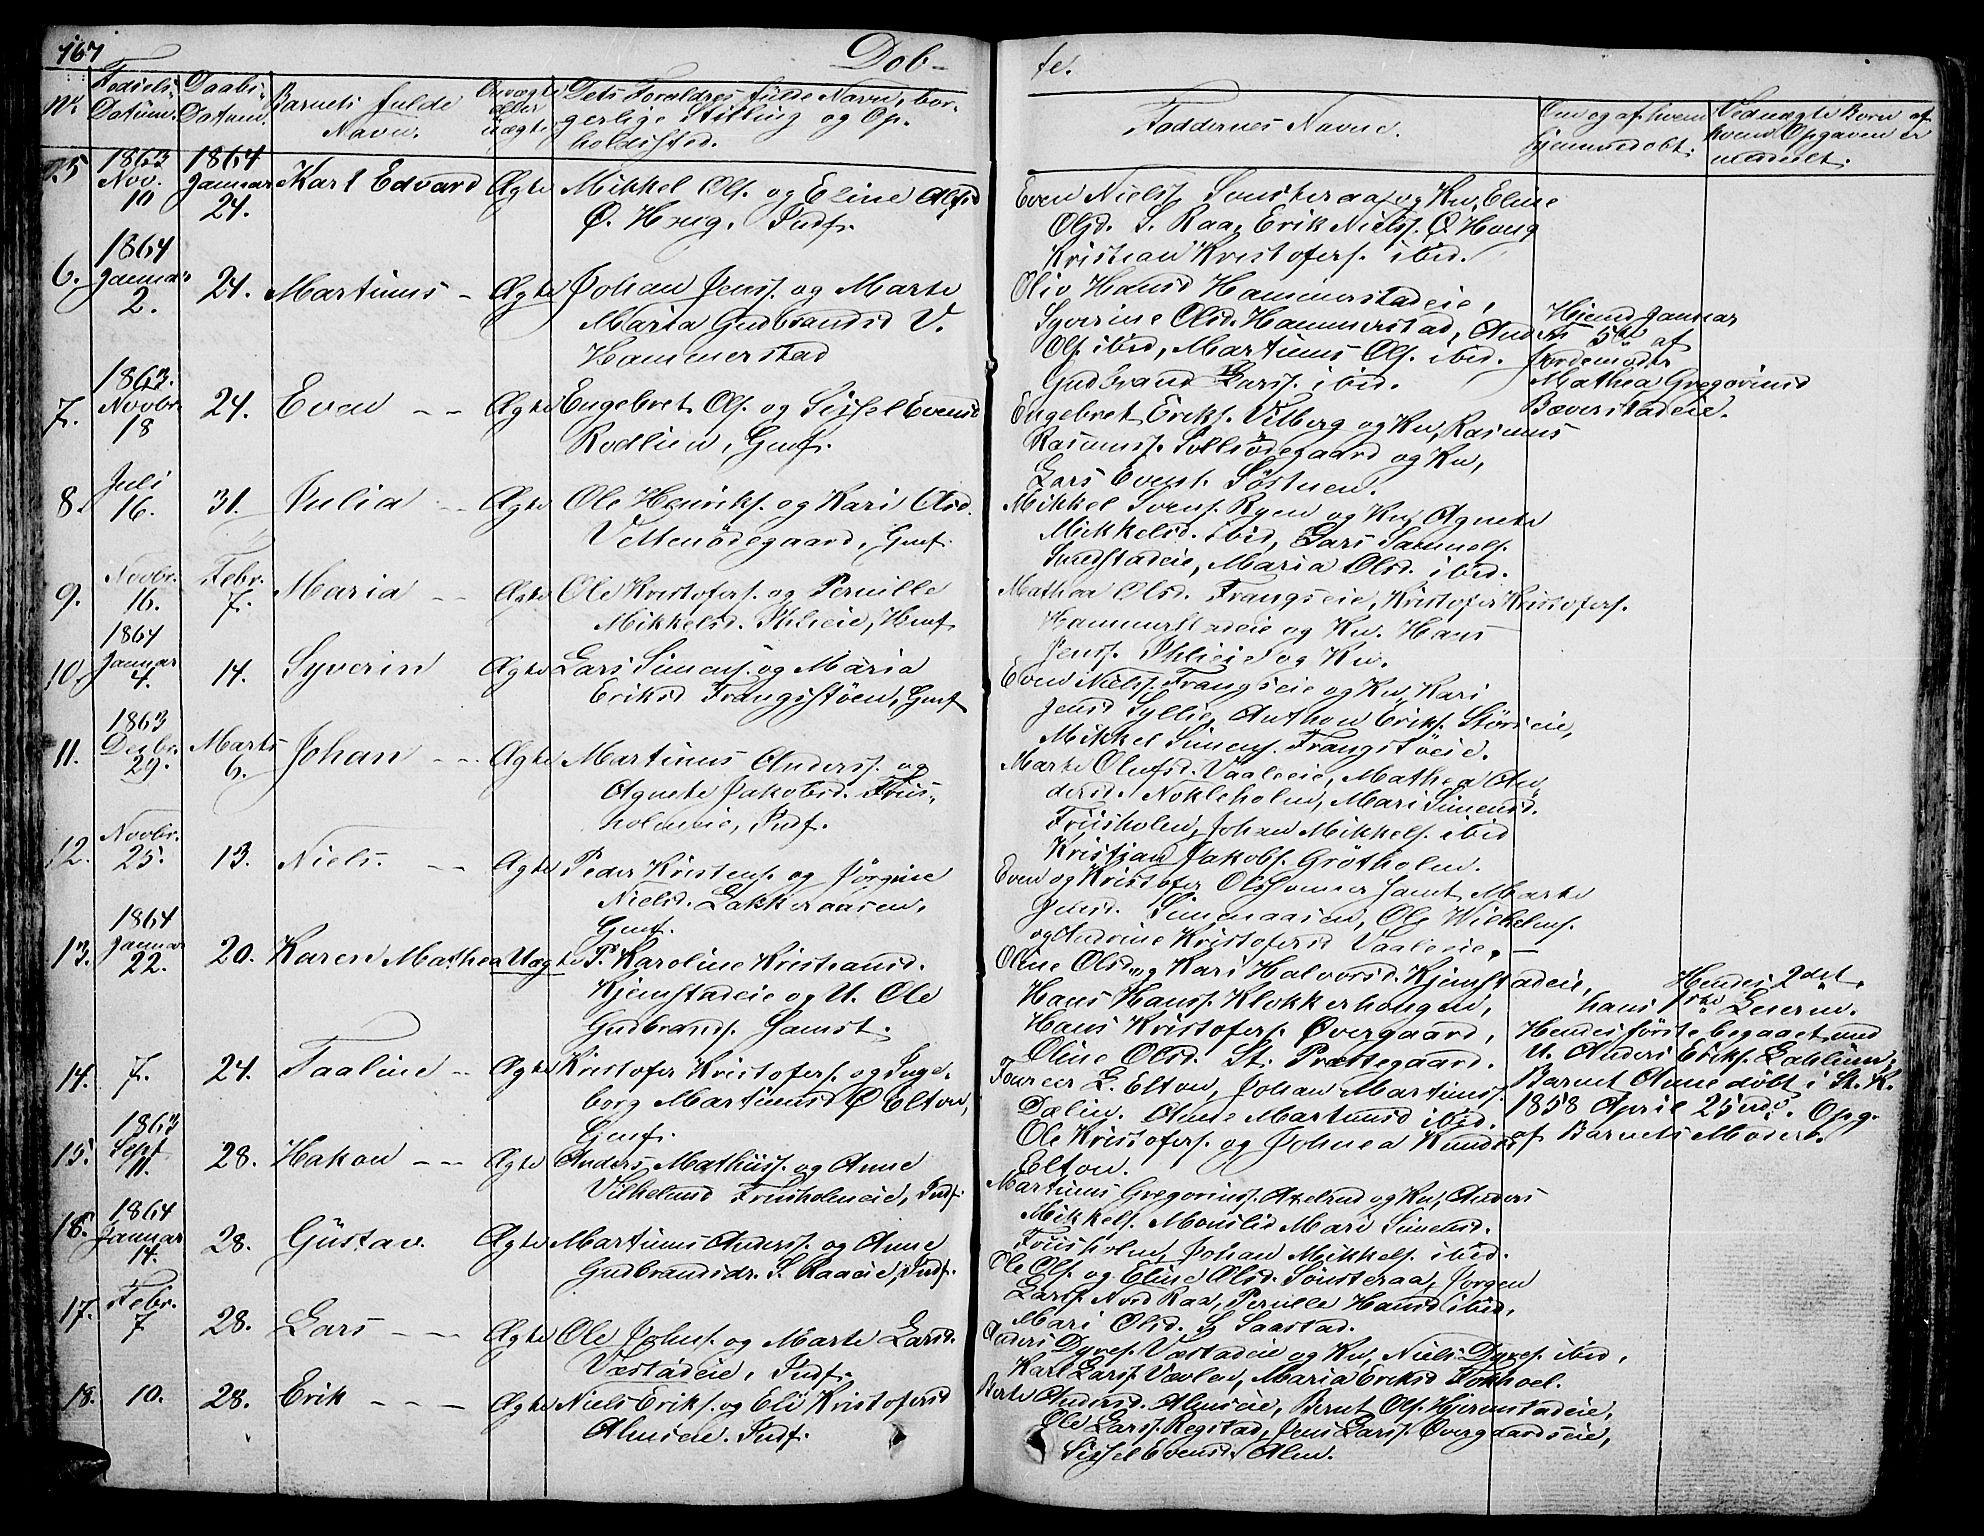 167
Døb-
te.
No.
Fødsels-
Datum.
Daabs-
Datum.
Barnets fulde
Navn.
Om ægte
eller
uægte.
Dets Forældres fulde Navn, bor-
gerlige Stilling og Op-
holdssted.
Faddernes Navne.
Om og af hvem
hjemmedøbt.
Ved uægte Børn af
hvem Opgaven er
meddelt.
5. 1863 Nov. 10 1864 Januar 24. Karl Edvard Ægte Mikkel Ols. og Eline Olsd
Ø. Houg. Indf.
Even Nielss. Sønsteraa og Ku, Eline
Olsd. S. Raa, Erik Nielss. Ø Houg
Kristian Kristofers. ibid.
6. 1864 Januar 2. 24. Martinus Ægte Johan Jenss. og Marte
Maria Gudbrandsd V.
Hammerstad
Oliv Hansd Hammerstadeie,
Syverine Olsd. Hammerstad, Anders
Ols. ibid, Martinus Ols. ibid.
Gudbrand Larss. ibid.
Hjemd Januar
5te af
Jordemoder
Mathea Gregoriusd
Bæverstadeie.
7. 1863. Novbr. 18 24. Even Ægte Engebret Ols. og Sissel Evensd
Rødlien, Gmf.
Engebret Eriks. Vilberg og Ku, Rasmus
Rasmuss. Sollsødegaard og Ku,
Lars Evens. Søstuen.
8. Juli 16. 31. Julia Ægte Ole Henriks. og Kari Olsd.
Vettenødegaard, Gmf.
Mikkel Svens. Ryen og Ku, Agnete
Mikkelsd. ibid, Lars Samuels.
Smedstadeie, Maria Olsd. ibid.
9. Novbr. 16. Febr. 7. Maria Ægte Ole Kristofers. og Pernille
Mikkelsd. Ihlieie, Hmf
Mathea Olsd. Frangseie, Kristofer Kristofers.
Hammerstadeie og Ku. Hans
Jenss. Ihlieie og Ku.
10. 1864 Januar 4. 14. Syverin Ægte Lars Simens. og Maria
Eriksd Frangsstøen, Gmf
Even Nielss. Frangseie og Ku, Kari
Jensd Syllie, Anthon Eriks. Størseie,
Mikkel Simens. Frangstøeie.
11. 1863 Desbr. 29. Marts 6. Johan Ægte Martinus Anderss. og
Agnete Jakobsd. Friis-
holmeie, Indf.
Marte Olufsd. Vaaleeie, Mathea An-
dersd. Nokleholm, Mari Simensd.
Friisholm, Johan Mikkels. ibid
Kristian Jakobs. Grøtholm.
12. Novbr. 25. 13. Niels. Ægte Peder Kristens. og Jørgine
Nielsd. Lakkeraasen.
Gmf.
Even og Kristofer Olssønner samt Marte
Jensd. Simenaasen, Ole Wilhelms.
og Andrine Kristofersd Vaaleeie.
13. 1864 Januar 22. 20. Karen Mathea Uægte P. Karoline Kristiansd.
Kjemstadeie og U. Ole
Gudbrands. Samst.
Oline Olsd og Kari Halvorsd. Kjemstadeie,
Hans Hanss. Klokkerhougen,
Hans Kristofers. Overgaard,
Oline Olsd. St. Prættegaard.
Hendes 2det
hans 1ste Leierm.
Hendes første begaaet med
U. Anders Eriks. Lahlum,
Barnet Anne døbt i St. K.
1858 April 25nds. Opg.
af Barnets Moder.
14. 7. 24. Taaline Ægte Kristofer Kristofers. og Inge-
borg Martinusd Ø Elton,
Gmf.
Toureer L. Elton, Johan Martinuss.
Dælin. Anne Martinusd ibid.
Ole Kristofers. og Johnea Knudsd
Elton.
15. 1863 Sept 11. 28. Hakon Ægte Anders Mathiiss. og Anne
Vilhelmd Friisholmeie, Indf.
Martinus Gregoriuss. Axelrud og Ku, Anders
Mikkels. Monslid Mari Simensd.
Friisholm, Johan Mikkels. ibid.
16. 1864 Januar 14. 28. Gustav. Ægte Martinus Anderss. og Anne
Gudbrandsdr. S. Raaeie, Indf.
Ole Ols. og Eline Olsd. Sønsteraa, Jørgen
Larss. Nord Raa, Pernille Hansd ibid,
Mari Olsd. S Saastad.
17. Febr. 7 28. Lars Ægte Ole Johns. og Marte Larsd.
Væstadeie, Indf.
Anders Dyres. Væstadeie og Ku, Niels Dyres. ibid,
Karl Larss. Vævlen, Maria Eriksd Fokhoel.
18. 10. 28. Erik Ægte Niels Eriks. og Eli Kristofersd
Almseie. Indf.
Berte Andersd. Almseie, Bernt Ols. Hjerenstadeie,
Ole Larss. Regstad, Jens Larss. Overgaardseie,
Sissel Evensd. Alm.